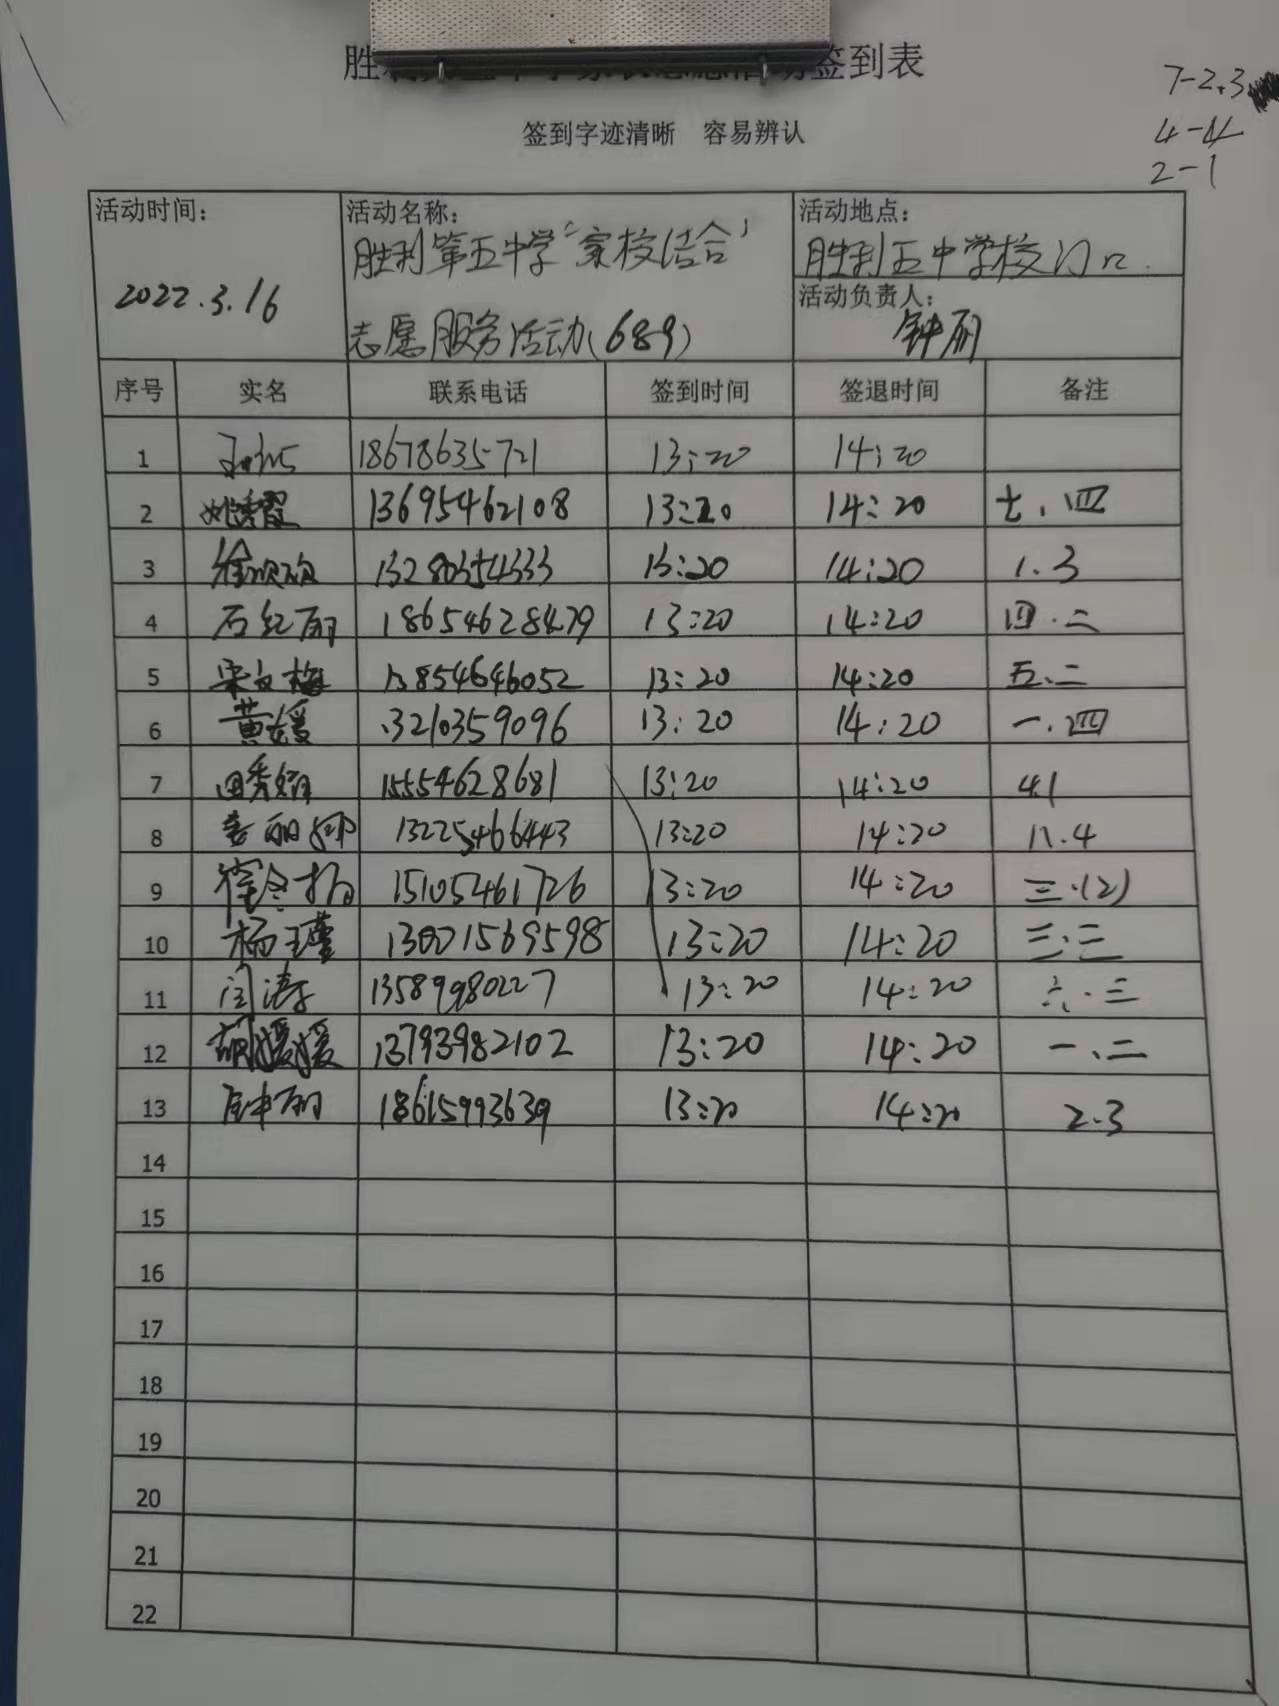 签到表
7-2.3
签到字迹清晰 容易辨认
4-4
2-1
活动时间： 活动名称： 活动地点：
胜利第五中学“家校结合” 胜利五中学校门口.
2022.3.16 活动负责人：
志愿服务活动（689） 钟丽
序号 实名 联系电话 签到时间 签退时间 备注
1 18678635721 13:20 14:20
2 姚秀霞 13695462108 13:20 14:20 七.四
3 徐欣欣 13280354333 13:20 14:20 1.3
4 石红丽 18654628479 13:20 14:20 四.二
5 宋文梅 13854646052 13:20 14:20 五.二
6 黄媛 13210359096 13:20 14:20 一.四
7 田秀娟 15554628681 13:20 14:20 4.1
8 姜丽娜 13225466443 13:20 14:20 八.4
9 15105461726 13:20 14:20 三.(2)
10 杨瑾 13001569598 13:20 14:20 三.三
11 闫涛 13589980227 13:20 14:20 六.三
12 胡媛媛 13793982102 13:20 14:20 一.二
13 钟丽 18615993639 13:20 14:20 2.3
14
15
16
17
18
19
20
21
22